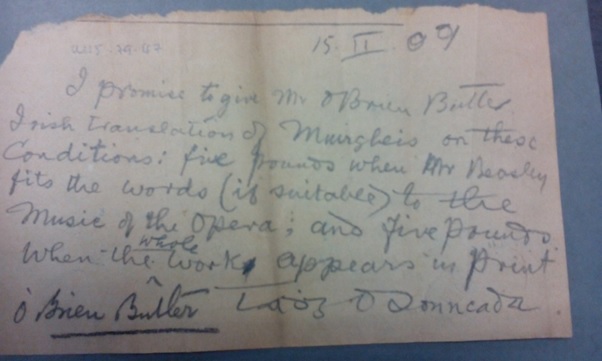 15. II. 09
I promise to give Mr O'Brien Butler
Irish translation of Muirgheis on these
Conditions: five pounds when Mr Beasley
fits the words (if suitable) to the
Music of the Opera; and five pounds
when the whole work, appears in print
O'Brien Butler Tadg O Donncada.